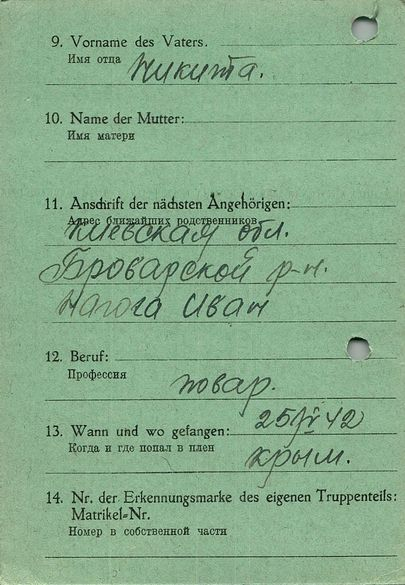 9. Vorname des Vaters.
Имя отца
Никита.
10. Name der Mutter:
Имя матери
11. Anschrift der nächsten Angehörigen:
Адрес ближайших родственников
Киевская обл.
Броварской р-н.
Нагога Иван
12. Beruf:
Профессия
повар.
13. Wann und wo gefangen: 25/V 42
Когда и где попал в плен
крым.
14. Nr. der Erkennungsmarke des eigenen Truppenteils:
Matrikel-Nr.
Номер в собственной части